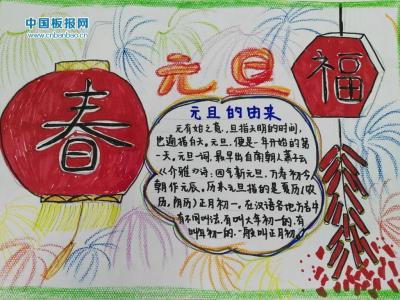 中国板报网
www.cnbanbao.cn
元旦
春
福
元旦的由来
元有始之意,旦指天明的时间,
也通指白天。元旦,便是一年开始的第
一天。元旦一词,最早出自南朝人萧子云
《介雅》诗:四气新元旦,万寿初今
朝作元辰。历来元旦指的是夏历(农
历,阴历)正月初一。在汉语各地方言中
有不同叫法,有叫大年初一的,有
叫
初一的,一般叫正月初一。